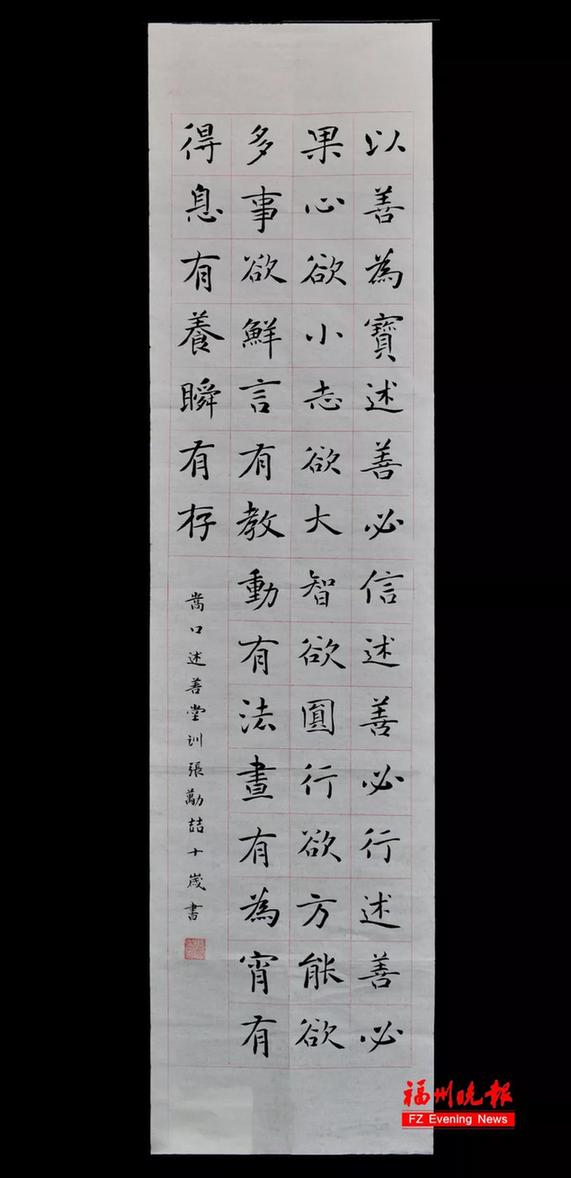 以善為寶述善必信述善必行述善必
果心欲小志欲大智欲圓行欲方能欲
多事欲鮮言有教動有法晝有為宵有
得息有養瞬有存
嵩口述善堂训張勱喆十歲書
福州晚報
FZ Evening News